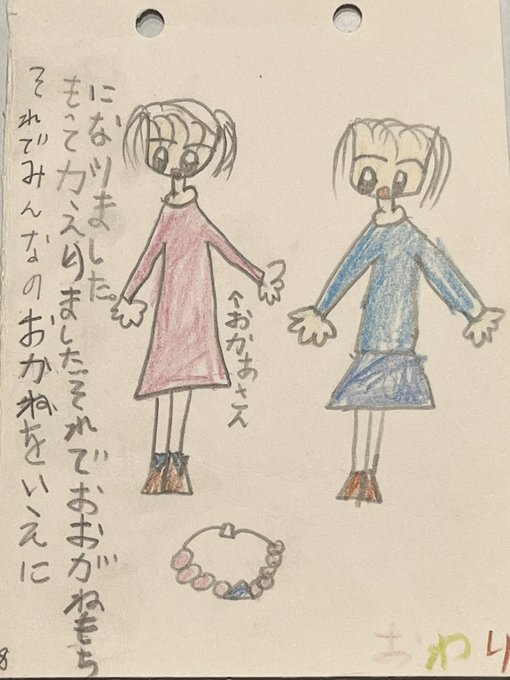 それでみんなのおかねをいえに
もってかえりました。それでおおがねもち
になりました。
↑おかあさん
おわり
8